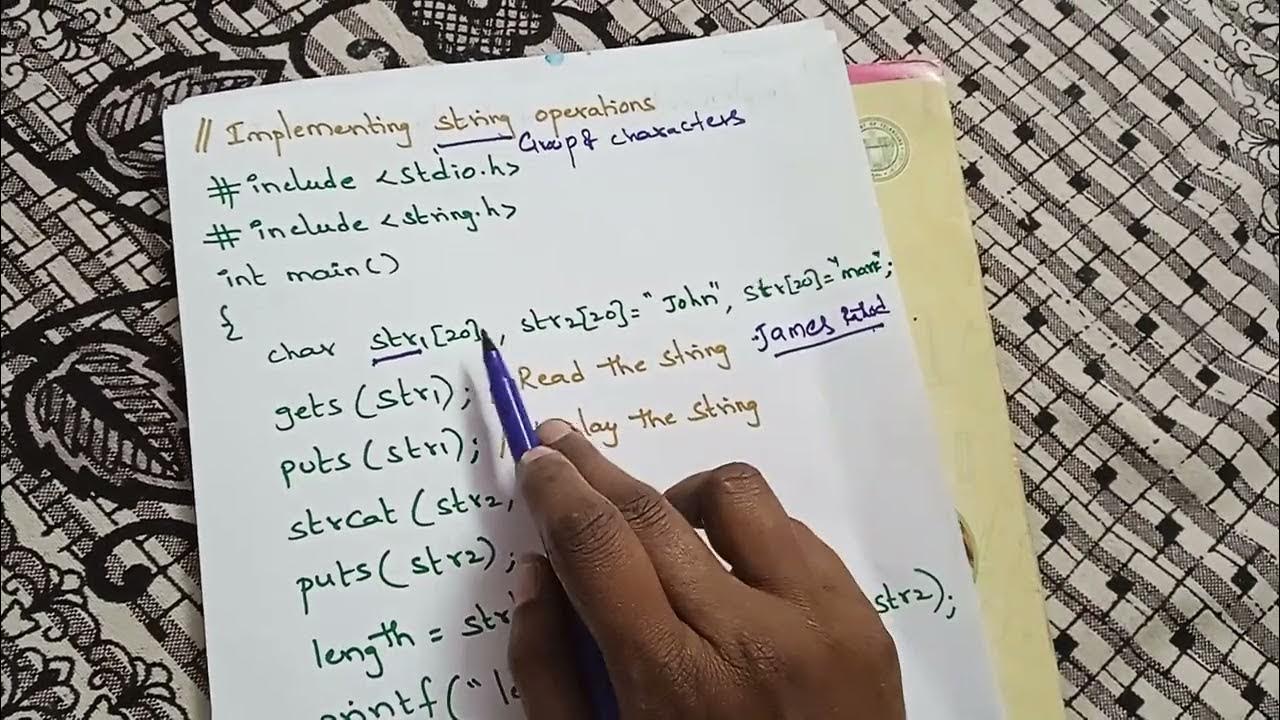 // Implementing string operations
Group of characters
#include <stdio.h>
#include <string.h>
int main()
{
char str1[20], str2[20]="John", str[20]="mark";
gets(str1); Read the string James
puts(str1); / lay the string
strcat(str2,
puts(str2);
length = str str2);
printf("le